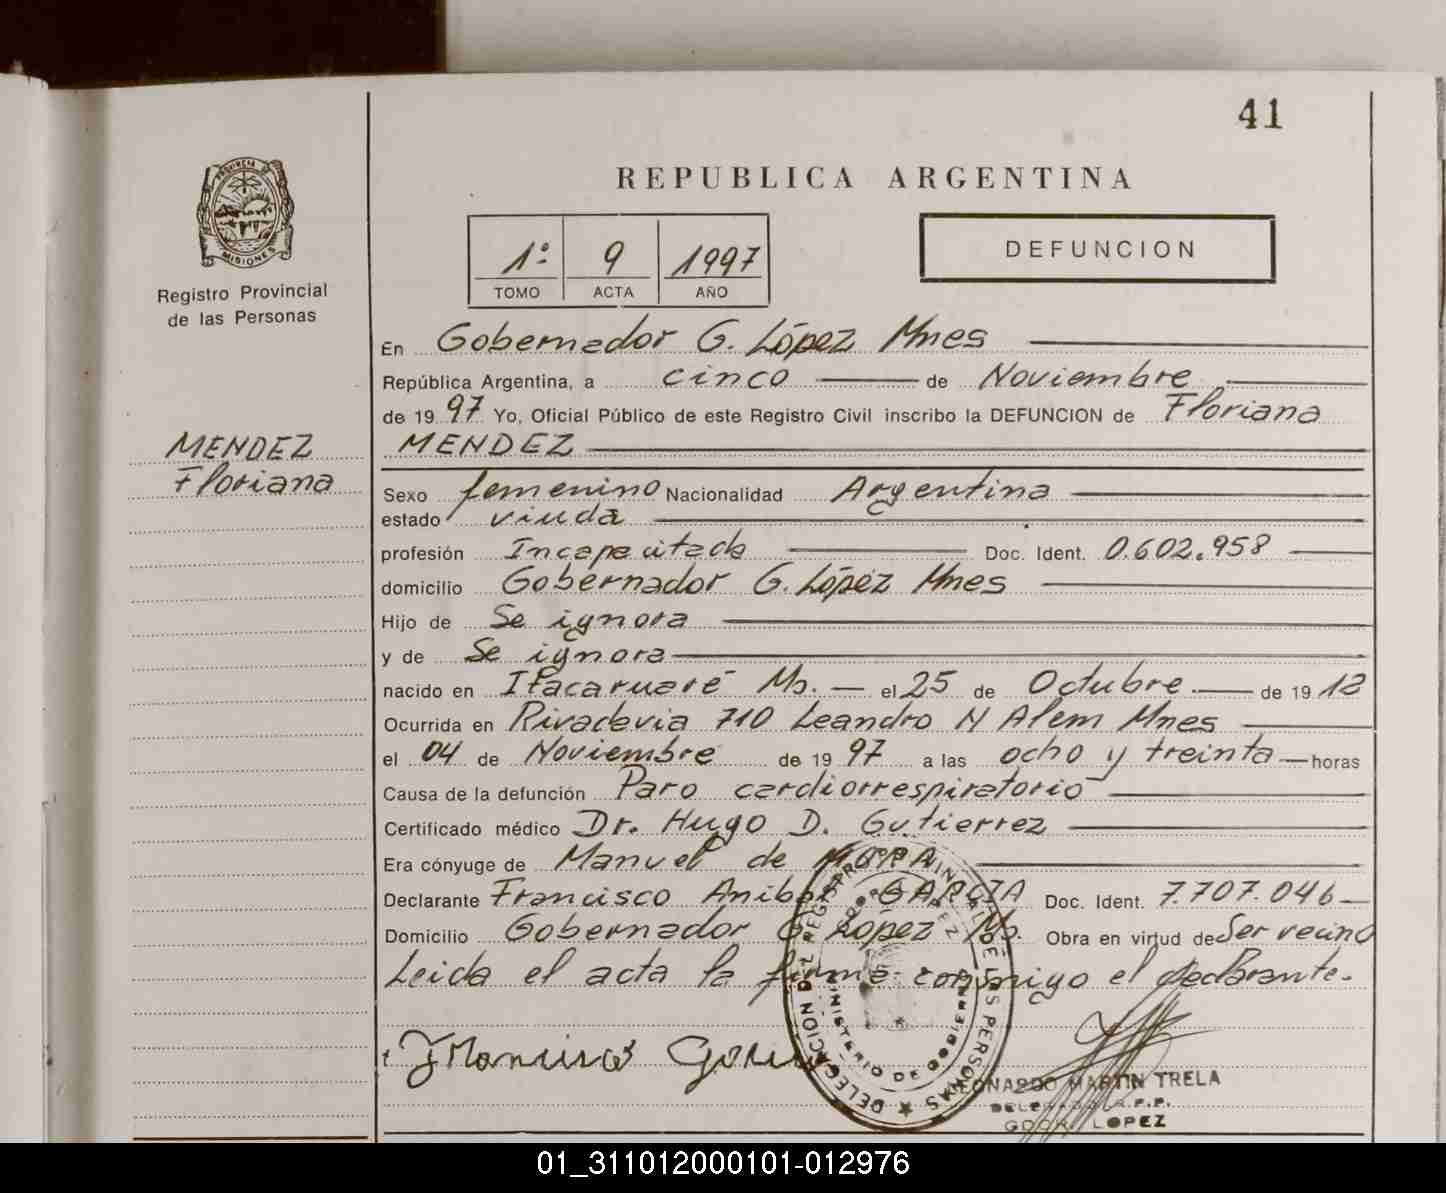 41
REPUBLICA ARGENTINA
PROVINCIA DE
MISIONES
Registro Provincial
de las Personas
1º 9 1997
TOMO ACTA AÑO
DEFUNCION
En Gobernador G. López Mnes
República Argentina, a cinco de Noviembre
de 1997 Yo, Oficial Público de este Registro Civil inscribo la DEFUNCION de Floriana
MENDEZ
MENDEZ
Floriana
Sexo femenino Nacionalidad Argentina
estado viuda
profesión Incapacitada Doc. Ident. 0.602.958
domicilio Gobernador G. López Mnes
Hijo de Se ignora
y de Se ignora
nacido en Itacaruaré Ms. el 25 de Octubre de 1912
Ocurrida en Rivadavia 710 Leandro N Alem Mnes
el 04 de Noviembre de 1997 a las ocho y treinta horas
Causa de la defunción Paro cardiorrespiratorio
Certificado médico Dr. Hugo D. Gutierrez
Era cónyuge de Manuel de MORA
Declarante Francisco Anibal GARCIA Doc. Ident. 7.707.046
Domicilio Gobernador G. López Ms. Obra en virtud de Ser vecino
Leida el acta la firma conmigo el declarante.
DELEGACION DEL REGISTRO PROVINCIAL DE LAS PERSONAS
MINISTERIO DE GOBIERNO
Francisco Garcia
LEONARDO MARTIN TRELA
DELEGADO R.P.P.
GDOR. LOPEZ
01_311012000101-012976